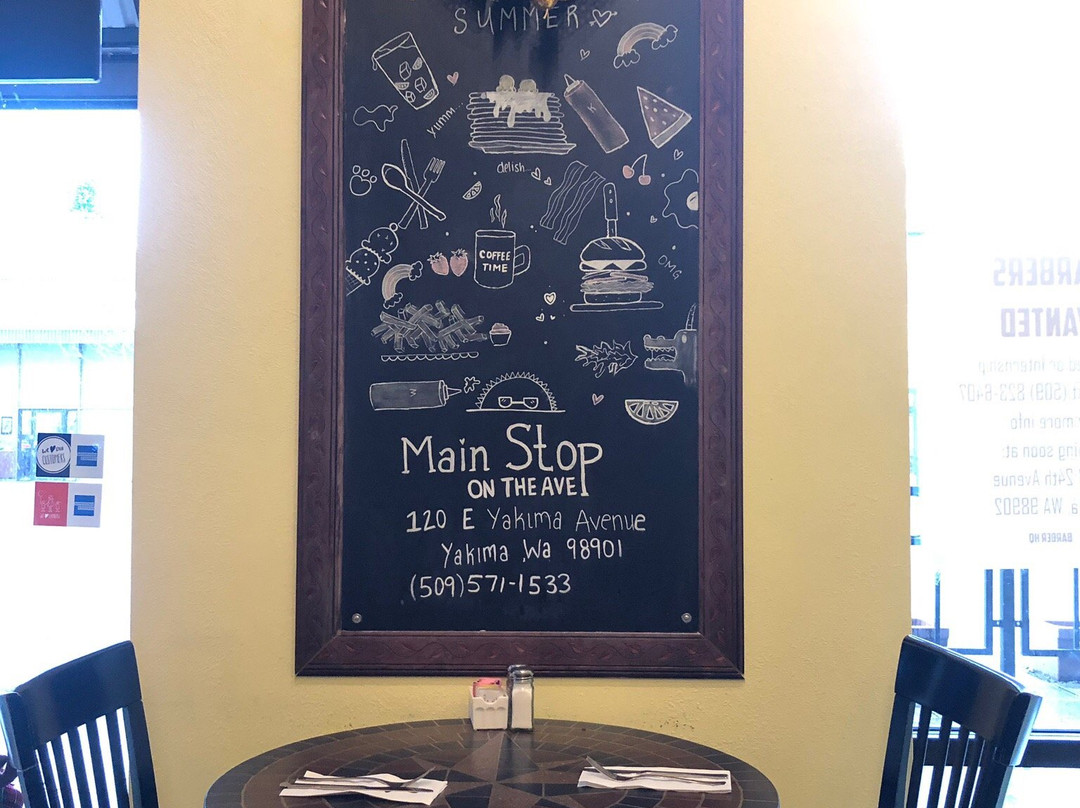 SUMMER
yumm...
K
delish...
COFFEE
TIME
OMG
M
Main Stop
ON THE AVE
120 E Yakima Avenue
Yakima, Wa 98901
(509)571-1533
CUSTOMERS
WANTED
(509) 823-6407
more info
soon at:
24th Avenue
WA 98902
BARBER HQ